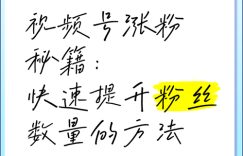 视频号涨粉
秘籍:
快速提升粉丝
数量的方法